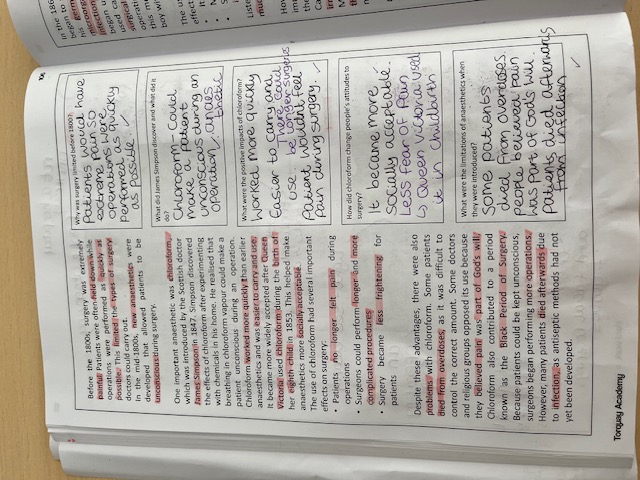 Before the 1800s, surgery was extremely
painful. Patients were often held down while
operations were performed as quickly as
possible. This limited the types of surgery
doctors could carry out.
In the mid-1800s, new anaesthetics were
developed that allowed patients to be
unconscious during surgery.
One important anaesthetic was chloroform,
which was introduced by the Scottish doctor
James Simpson in 1847. Simpson discovered
the effects of chloroform after experimenting
with chemicals in his home. He realised that
breathing in chloroform vapour could make a
patient unconscious during an operation.
Chloroform worked more quickly than earlier
anaesthetics and was easier to carry and use.
It became more widely accepted after Queen
Victoria used chloroform during the birth of
her eighth child in 1853. This helped make
anaesthetics more socially acceptable.
The use of chloroform had several important
effects on surgery:
• Patients no longer felt pain during
operations
• Surgeons could perform longer and more
complicated procedures
• Surgery became less frightening for
patients
Despite these advantages, there were also
problems with chloroform. Some patients
died from overdoses, as it was difficult to
control the correct amount. Some doctors
and religious groups opposed its use because
they believed pain was part of God's will.
Chloroform also contributed to a period
known as the Black Period of Surgery.
Because patients could be kept unconscious,
surgeons began performing more operations.
However, many patients died afterwards due
to infection, as antiseptic methods had not
yet been developed.
Why was surgery limited before 1800?
Patients would have
extreme pain so
operations were
performed as quickly
as possible.
What did James Simpson discover and what did it
do?
Chloroform - could
make a patient
unconscious during an
operation.
What were the positive impacts of chloroform?
Worked more quickly
Easier to carry and
use. there could
be longer surgeries
Patient wouldn't feel
pain during surgery.
How did chloroform change people's attitudes to
surgery?
It became more
socially acceptable.
Less fear of pain
Queen Victoria used
it in childbirth
What were the limitations of anaesthetics when
they were introduced?
Some patients
died from overdoses.
People believed pain
was part of God's will
Patients died afterwards
from infection
Torquay Academy